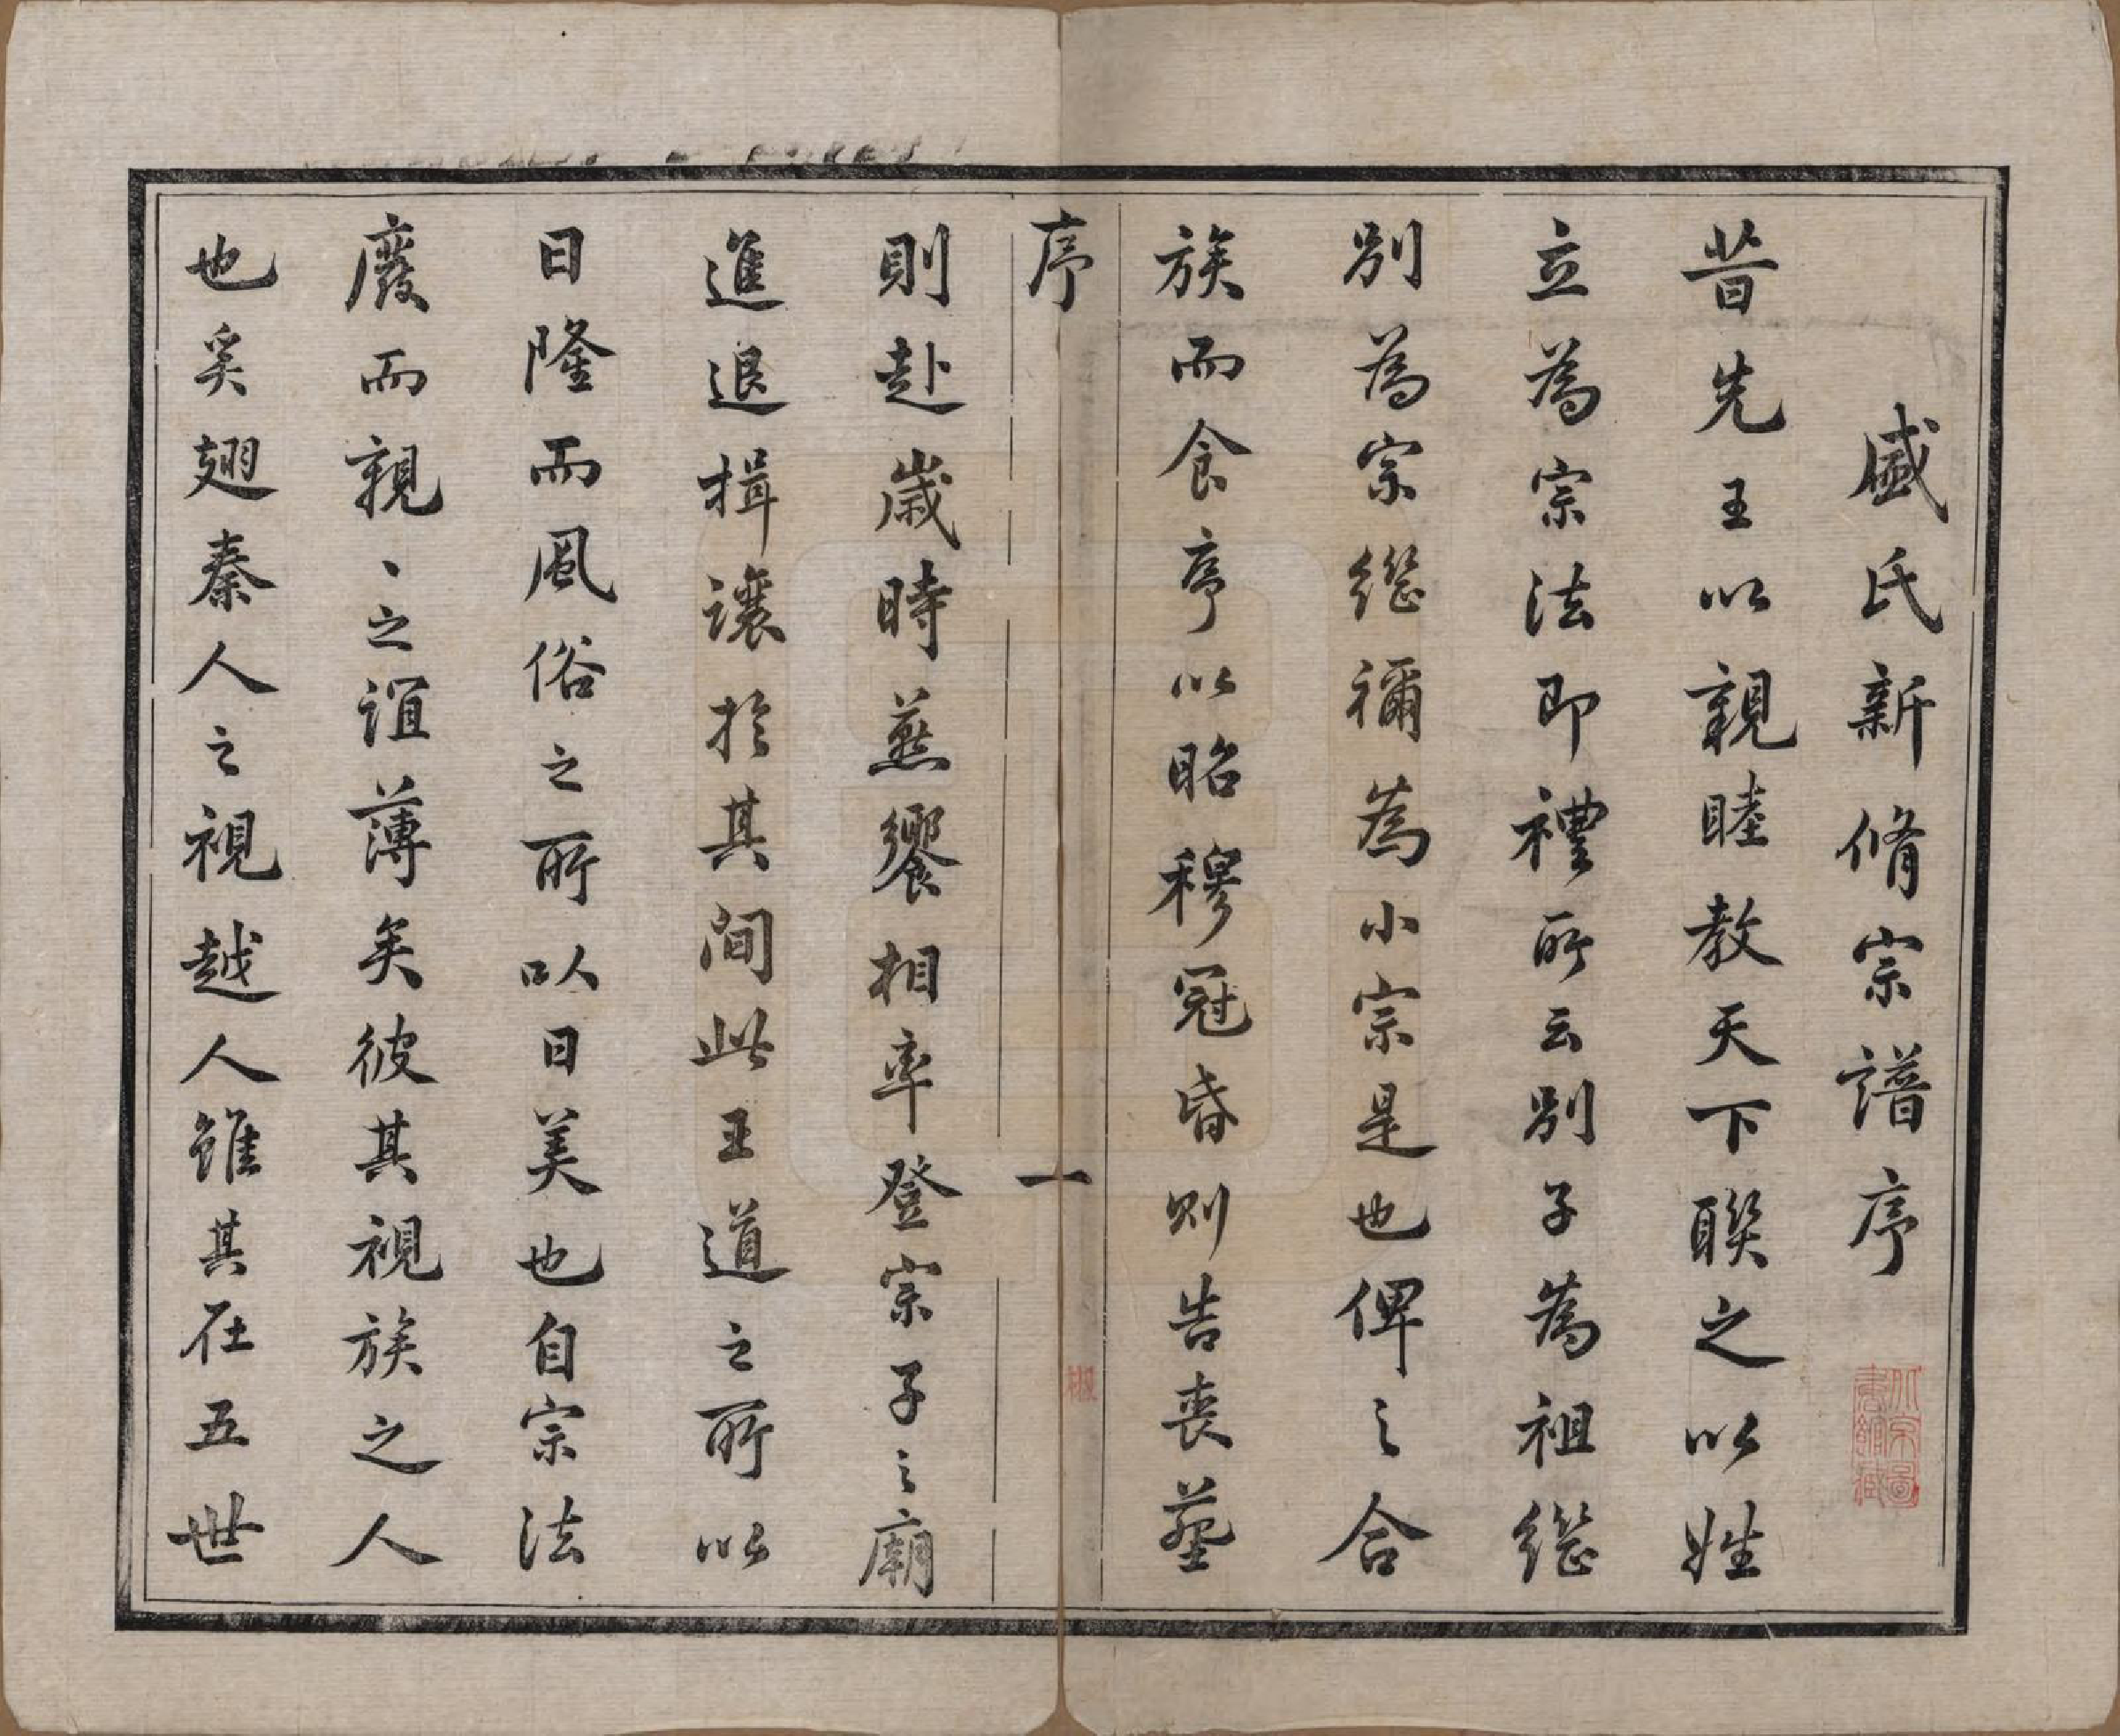 盛氏新脩宗譜序
昔先王以親睦教天下聯之以姓
立為宗法即禮所云別子為祖繼
別為宗繼禰為小宗是也俾之合
族而食序以昭穆冠昏則告喪葬
序
一
則赴歲時烝饗相率登宗子之廟
進退揖讓於其間此王道之所以
日隆而風俗之所以日美也自宗法
廢而親、之誼薄矣彼其視族之人
也奚翅秦人之視越人雖其在五世